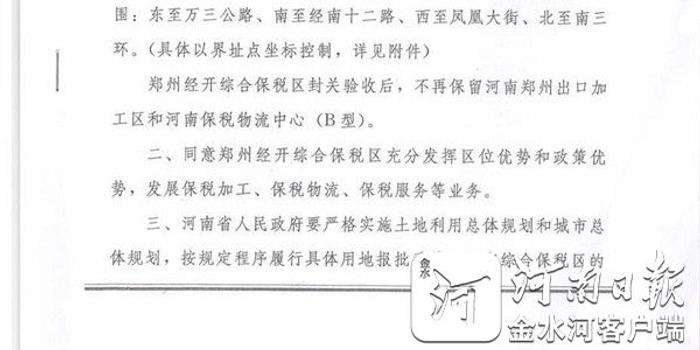 围：东至万三公路、南至经南十二路、西至凤凰大街、北至南三
环。（具体以界址点坐标控制，详见附件）
郑州经开综合保税区封关验收后，不再保留河南郑州出口加
工区和河南保税物流中心（B 型）。
二、同意郑州经开综合保税区充分发挥区位优势和政策优
势，发展保税加工、保税物流、保税服务等业务。
三、河南省人民政府要严格实施土地利用总体规划和城市总
体规划，按规定程序履行具体用地报批
综合保税区的
金水
河
河南日报
金水河客户端